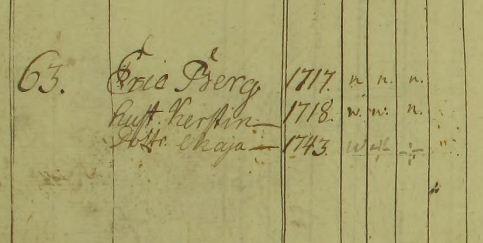 63. Eric Berg. 1717. n. n. n.
hust. Kerstin — 1718. n. n. n.
Dottr. Maja — 1743.